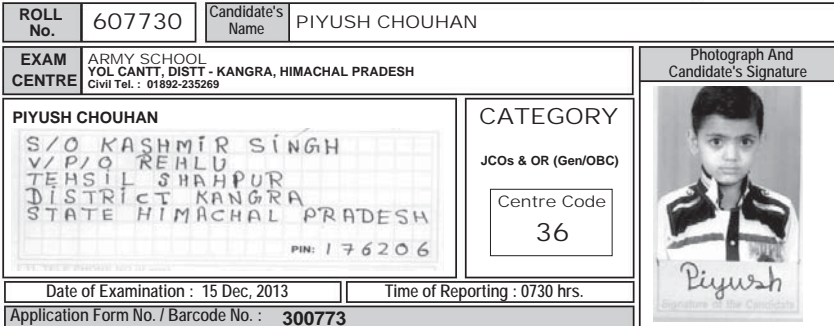 ROLL No. 607730 Candidate's Name PIYUSH CHOUHAN
EXAM CENTRE
ARMY SCHOOL
YOL CANTT, DISTT - KANGRA, HIMACHAL PRADESH
Civil Tel. : 01892-235269
Photograph And
Candidate's Signature
PIYUSH CHOUHAN
S/O KASHMIR SINGH
V/P/O REHLU
TEHSIL SHAHPUR
DISTRICT KANGRA
STATE HIMACHAL PRADESH
PIN: 176206
CATEGORY
JCOs & OR (Gen/OBC)
Centre Code
36
Piyush
Signature of the Candidate
Date of Examination : 15 Dec, 2013
Time of Reporting : 0730 hrs.
Application Form No. / Barcode No. : 300773